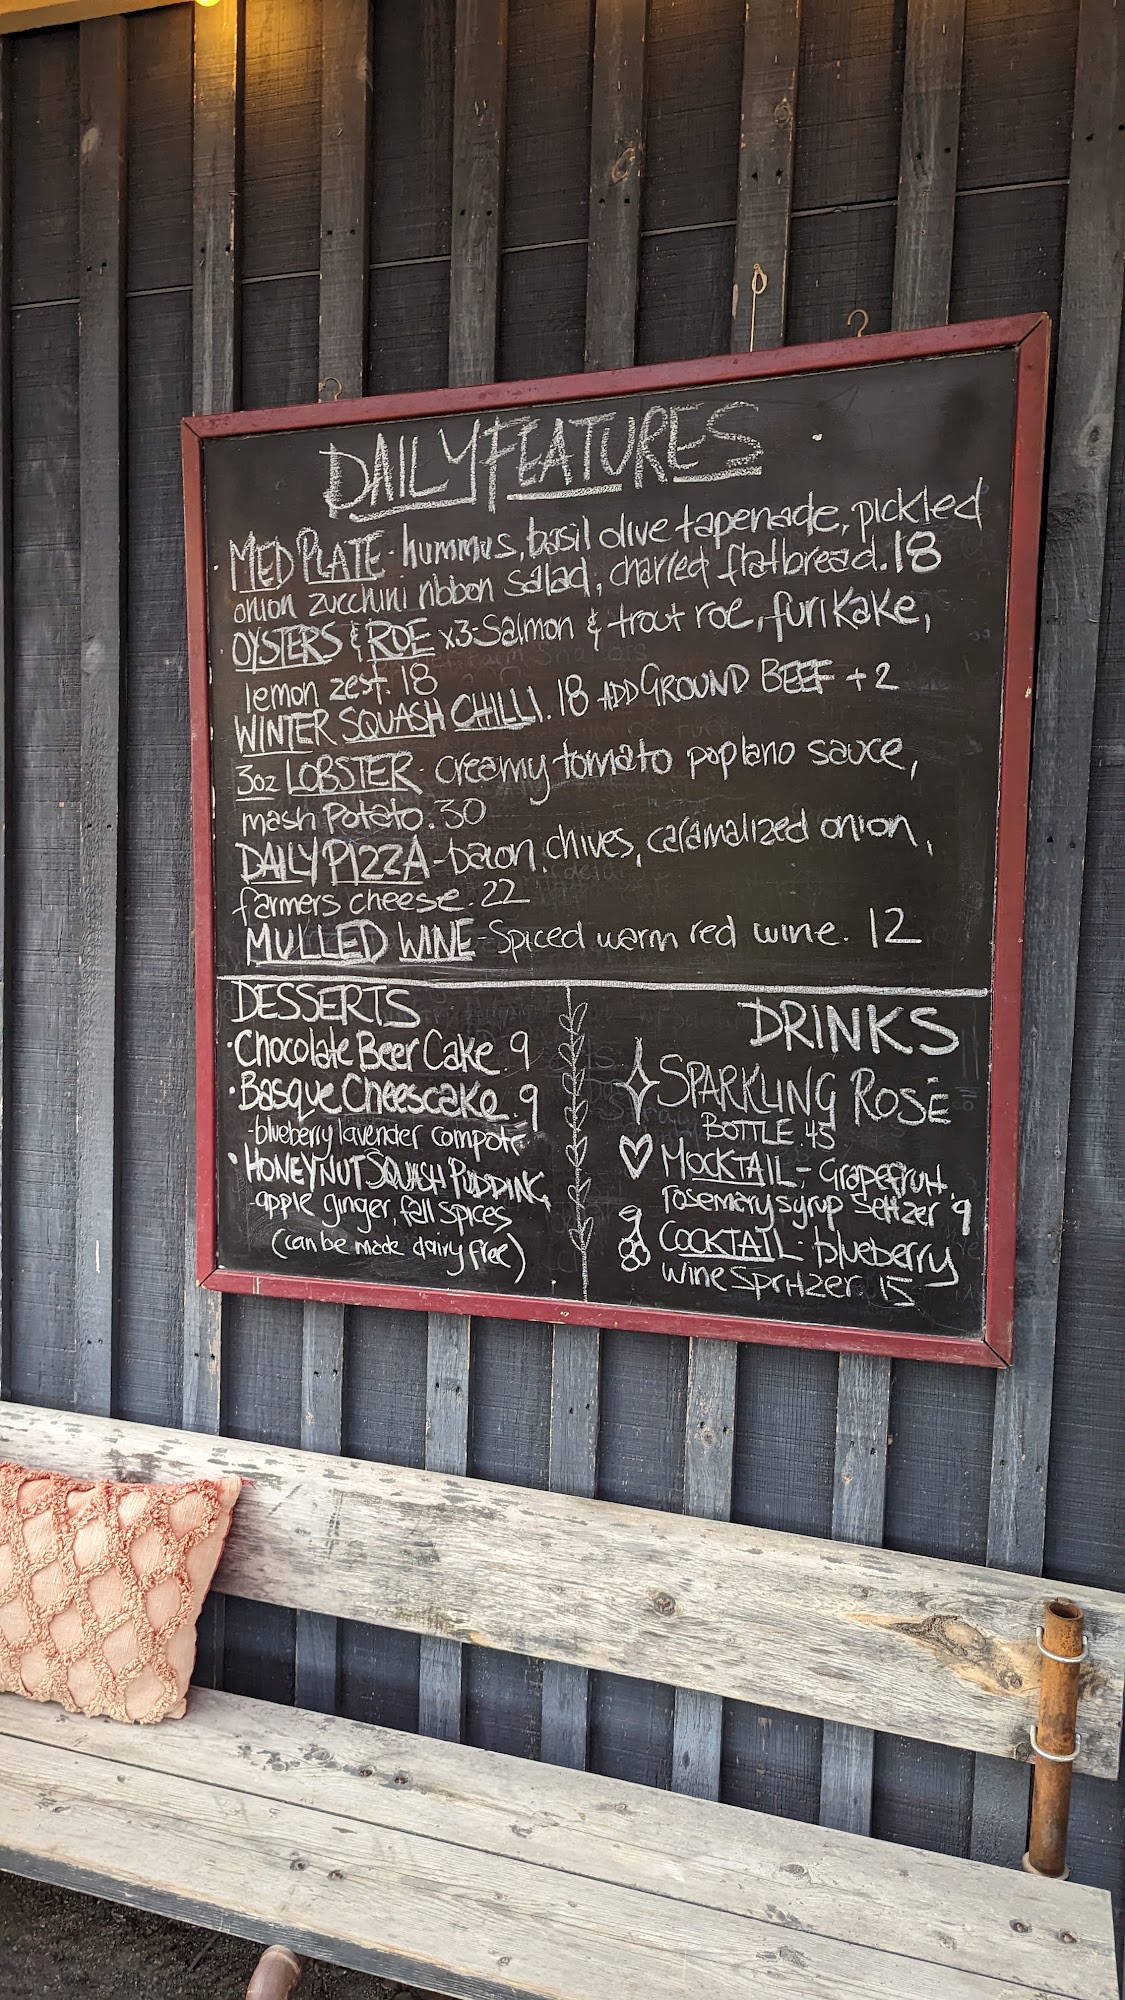 DAILY FEATURES
MED PLATE - hummus, basil olive tapenade, pickled
onion zucchini ribbon salad, charred flatbread. 18
OYSTERS & ROE x3 - Salmon & trout roe, furikake,
lemon zest. 18
WINTER SQUASH CHILLI. 18 ADD GROUND BEEF +2
3oz LOBSTER - creamy tomato poplano sauce,
mash potato. 30
DAILY PIZZA - bacon, chives, caramalized onion,
farmers cheese. 22
MULLED WINE - Spiced warm red wine. 12
DESSERTS
· Chocolate Beer Cake. 9
· Basque Cheescake. 9
- blueberry lavender compote
· HONEYNUT SQUASH PUDDING
- apple ginger, fall spices
(can be made dairy free)
DRINKS
SPARKLING ROSÉ
BOTTLE. 45
MOCKTAIL - Grapefruit,
rosemary syrup seltzer 9
COCKTAIL - blueberry
wine Spritzer 15